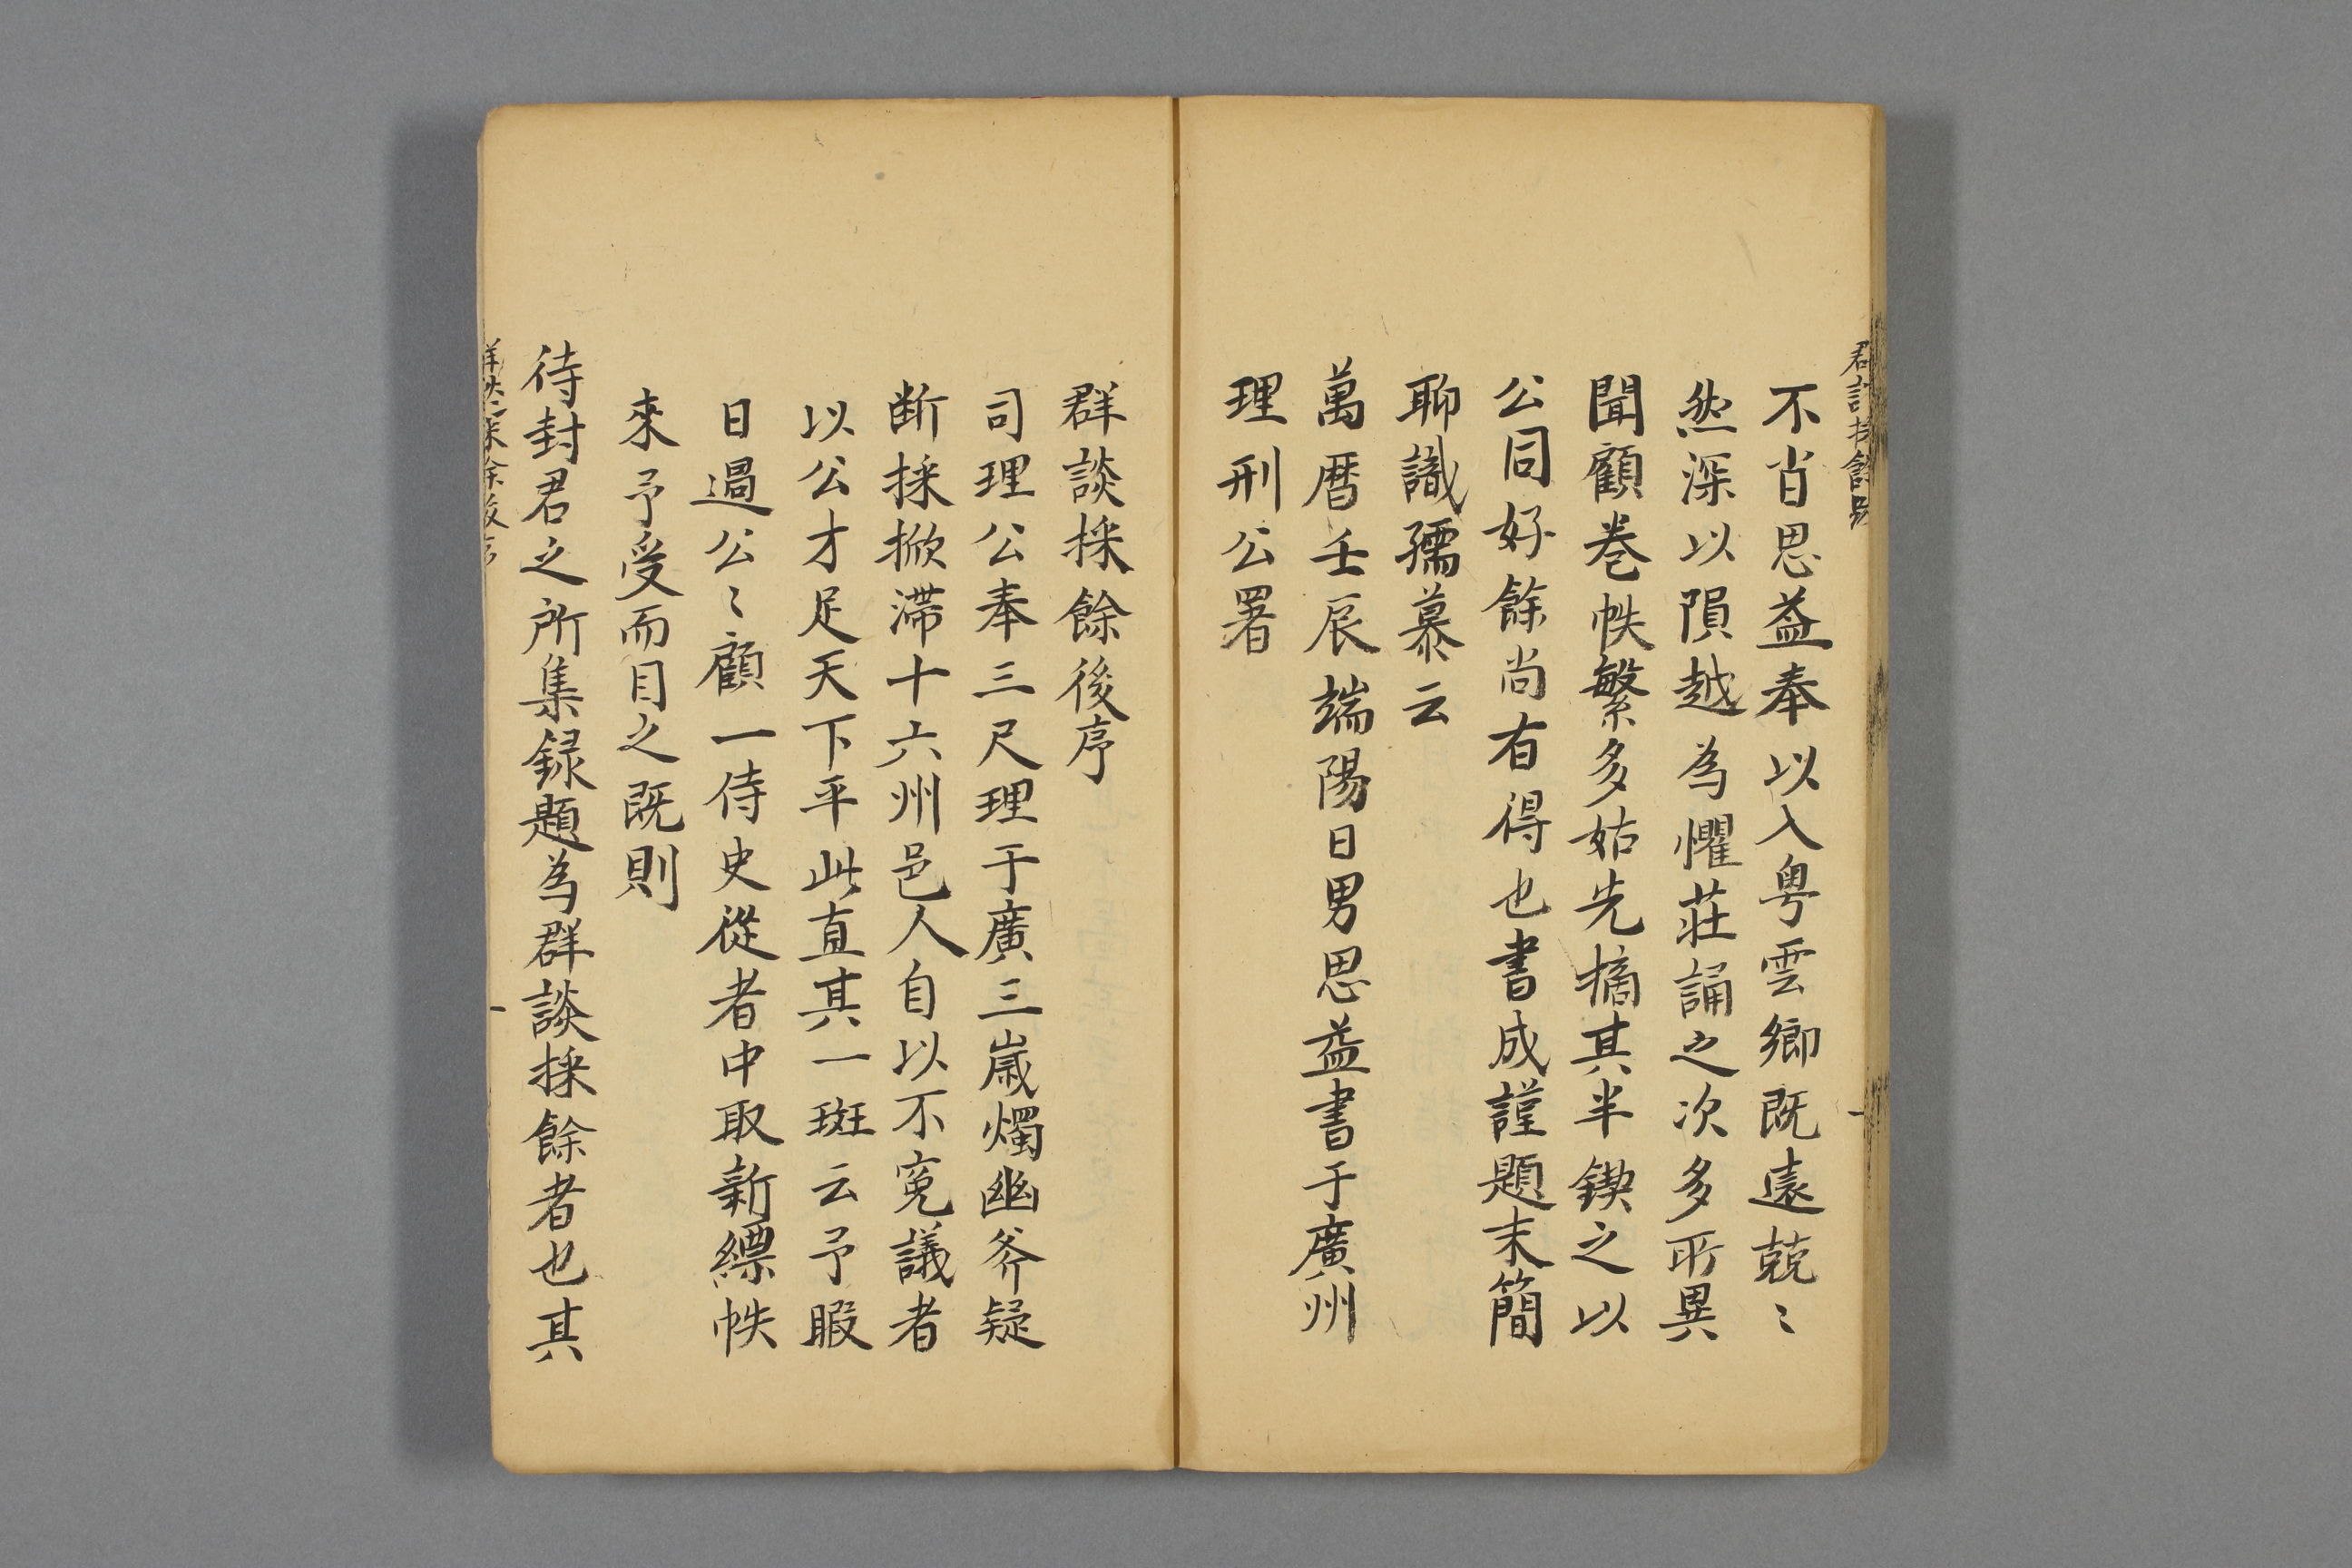 不肖思益奉以入粤雲鄉既遠兢〻
然深以隕越為懼莊誦之次多所異
聞顧巻帙繁多姑先摘其半鍥之以
公同好餘尚有得也書成謹題末簡
聊識孺慕云
萬暦壬辰端陽日男思益書于廣州
理刑公署
群談採餘後序
司理公奉三尺理于廣三歳燭幽斧疑
断採掀滞十六州邑人自以不寃議者
以公才足天下平此直其一斑云予暇
日過公〻顧一侍史從者中取新縹帙
來予受而目之既則
待封君之所集録題為群談採餘者也其